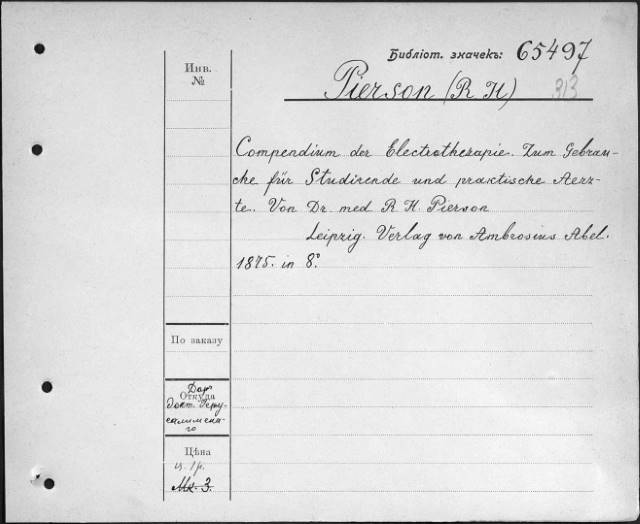 Библіот. значекъ: 65497
Pierson (R H) 313
Инв.
№
Compendium der Electrotherapie. Zum Gebrau-
che für Studirende und practische Aerz-
te. Von Dr. med R. H. Pierson
Leipzig. Verlag von Ambrosius Abel.
1875. in 8°.
По заказу
Откуда
Даръ
докт. Іеру-
салимска-
го
Цѣна
ц. 1 р.
Mk. 3.